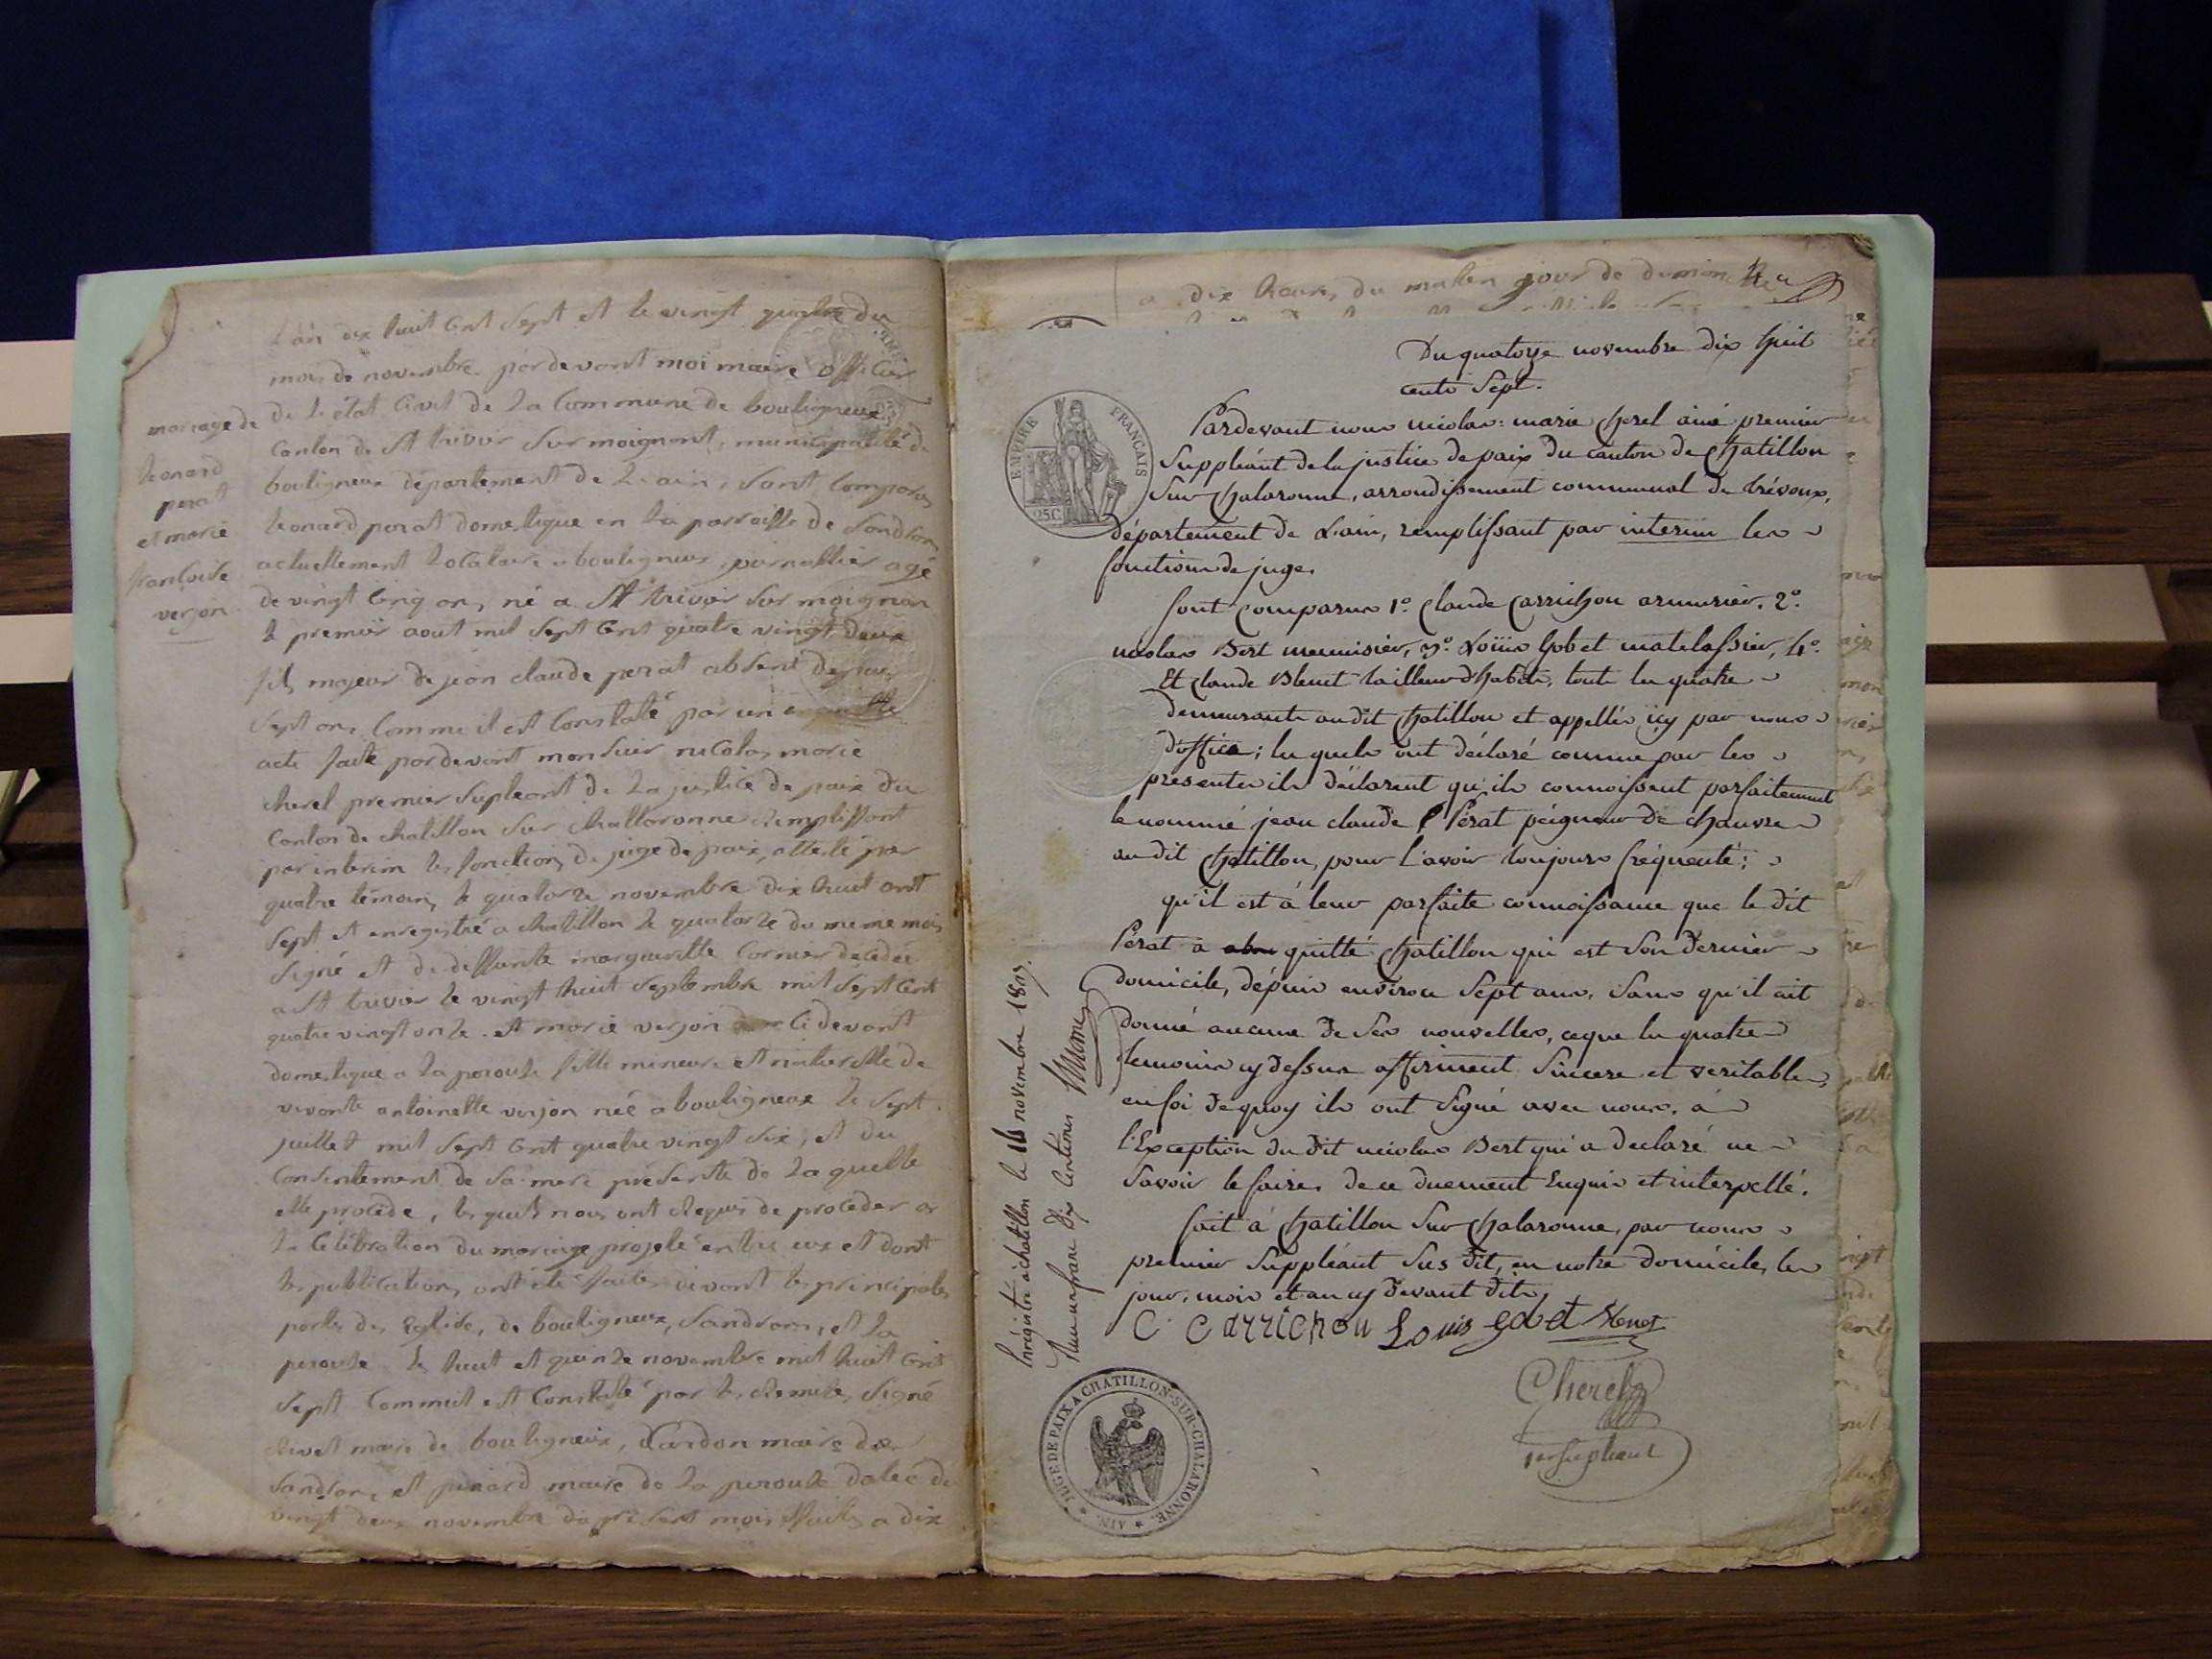 mariage de
Leonard
perat
et marie
francoise
verjon
L'an dix huit cent sept et le vingt quatre du
mois de novembre pardevant moi maire officier
de l'état Civil de la Commune de bouligneux
Canton de St trivier Sur moignant, municipalité de
bouligneux département de L'ain, Sont Comparus
Leonard perat domestique en la parroisse de Sandran
actuellement Locataire a bouligneux, journallier agé
de vingt Cinq ans, né a St trivier Sur moignan
le premier aout mil Sept Cent quatre vingt deux
fils majeur de jean claude perat absent depuis
Sept ans Comme il est Constaté par un
acte faite pardevant monsieur nicolas marie
cherel premier Supleant de La justice de paix du
Canton de chatillon Sur challaronne Remplissant
par interim les fonctions de juge de paix, attesté par
quatre témoins le quatorze novembre dix huit cent
Sept et enregistré a chatillon le quatorze du meme mois
Signé et de deffunte margueritte Cornier decedée
a St trivier le vingt huit Septembre mil Sept Cent
quatre vingt onze. et marie verjon ci devant
domestique a La perouse fille mineure et naturelle de
vivante antoinette verjon née a bouligneux le Sept
juillet mil Sept Cent quatre vingt Six, et du
Consentement de Sa mere présente de La quelle
elle procede, les quels nous ont Requis de proceder a
La Célébration du mariage projeté entre eux et dont
les publications ont été faites devant les principales
portes des Eglise, de bouligneux, Sandrans, et La
perouse le huit et quinze novembre mil huit Cent
Sept Comme il est Constaté par les Remise, Signé
Rivet maire de bouligneux, Dardon maire de
Sandran, et pinard maire de La perouse datée du
vingt deux novembre du présent mois faites a dix
a dix heures du matin jour de dimanche
Du quatorze novembre dix huit
cents Sept.
EMPIRE FRANÇAIS
25C
Pardevant nous nicolas-marie cherel ainé premier
Suppléant de la justice de paix du canton de Chatillon
Sur Chalaronne, arrondissement communal de trévoux,
département de L'ain, remplissant par interim les
fonctions de juge.
Sont comparus 1º. Claude Carrichon armurier. 2º.
nicolas Bert menuisier, 3º. Loüis Gobet matelassier, 4º.
Et Claude Blenet tailleur d'habits, touts les quatre
demeurants au dit Chatillon et appellés icy par nous
d'office; lesquels ont déclaré comme par les
presentes ils déclarent qu'ils connoissent parfaitement
le nommé jean claude Pérat peigneur de chanvre
au dit Chatillon, pour l'avoir toujours fréquenté;
qu'il est à leur parfaite connoissance que le dit
Pérat a quitté Chatillon qui est Son dernier
domicile, dépuis environ Sept ans, Sans qu'il ait
donné aucune de Ses nouvelles, ceque les quatre
temoins cy dessus affirment Sincere et veritable,
en foi de quoy ils ont Signé avec nous, à
l'Exception du dit nicolas Bert qui a declaré ne
Savoir le faire. de ce duement Enquis et interpellé.
fait à Chatillon Sur Chalaronne, par nous
premier Suppléant Sus dit, en notre domicile, les
jour, mois et an cy devant dits,
C Carrichon Louis gobet Blenet
Cherel
1er supleant
Enrégistré à chatillon le 16 novembre 1807.
Reçu un franc dix Centimes
JUGE DE PAIX A CHATILLON-SUR-CHALARONNE. * AIN. *